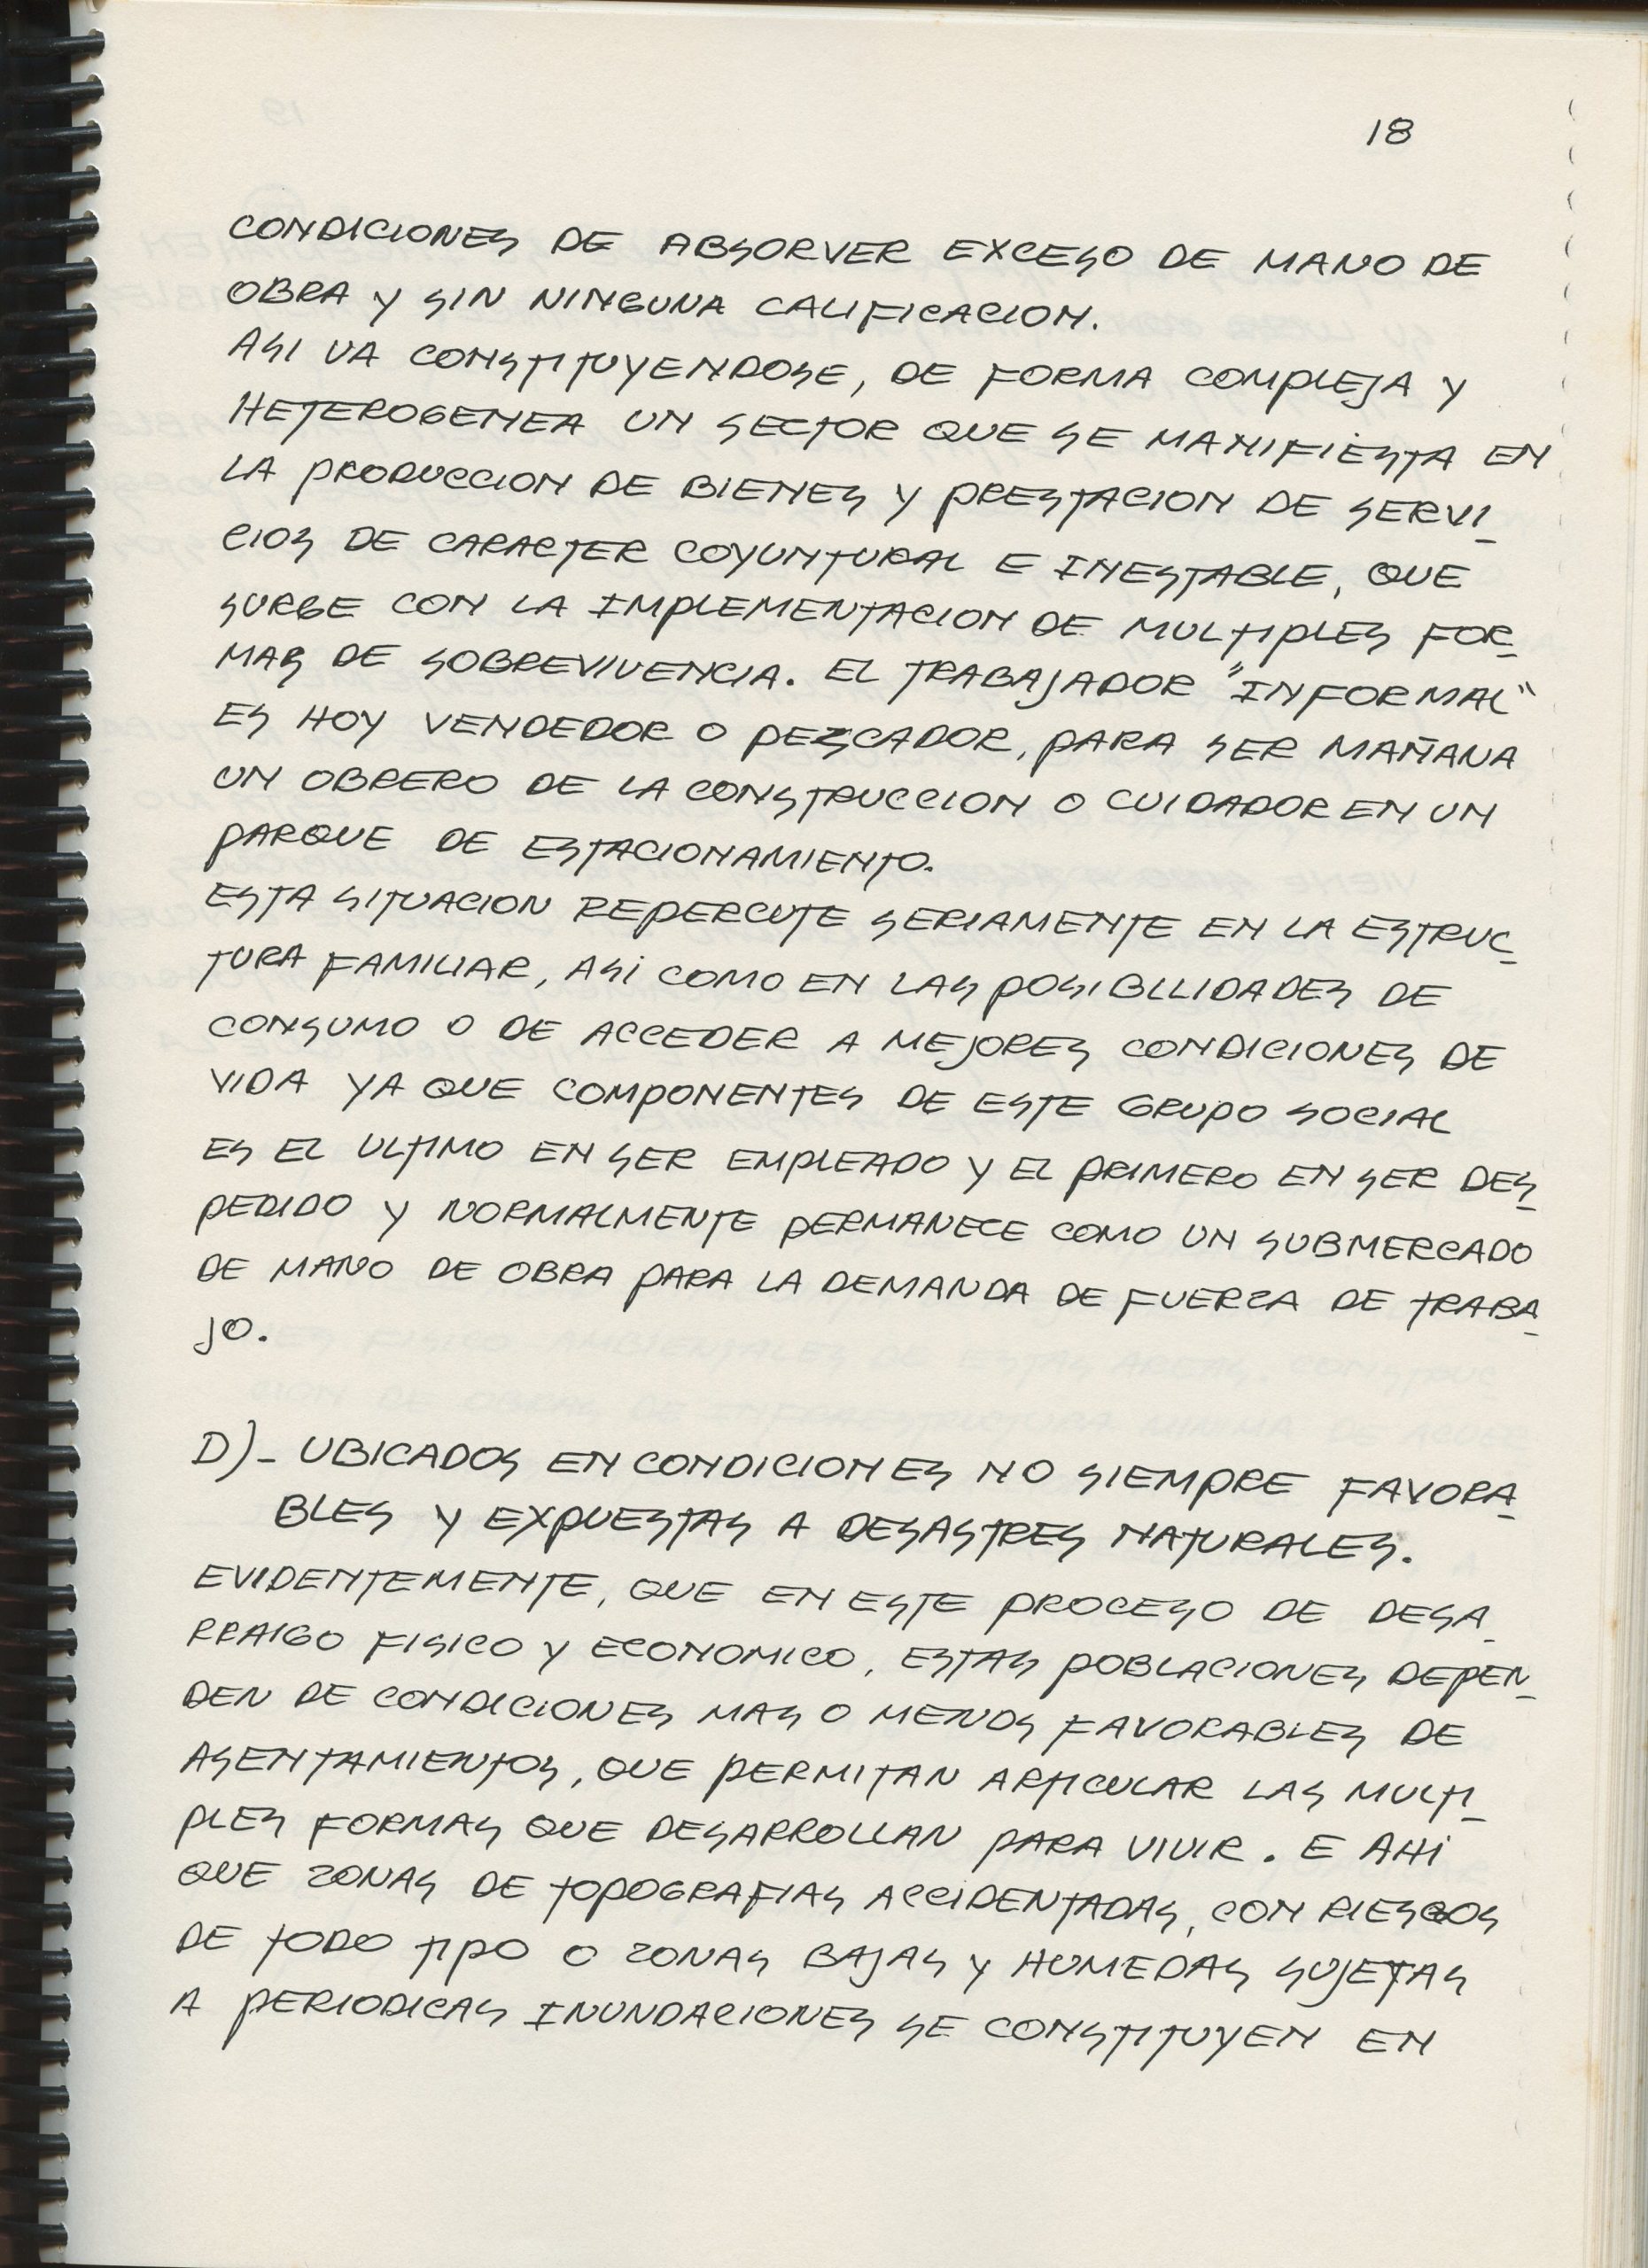 18
CONDICIONES DE ABSORVER EXCESO DE MANO DE
OBRA Y SIN NINGUNA CALIFICACION.
ASI VA CONSTITUYENDOSE, DE FORMA COMPLEJA Y
HETEROGENEA UN SECTOR QUE SE MANIFIESTA EN
LA PRODUCCION DE BIENES Y PRESTACION DE SERVI_
CIOS DE CARACTER COYUNTURAL E INESTABLE, QUE
SURGE CON LA IMPLEMENTACION DE MULTIPLES FOR_
MAS DE SOBREVIVENCIA. EL TRABAJADOR "INFORMAL"
ES HOY VENDEDOR O PESCADOR, PARA SER MAÑANA
UN OBRERO DE LA CONSTRUCCION O CUIDADOR EN UN
PARQUE DE ESTACIONAMIENTO.
ESTA SITUACION REPERCUTE SERIAMENTE EN LA ESTRUC_
TURA FAMILIAR, ASI COMO EN LAS POSIBILIDADES DE
CONSUMO O DE ACCEDER A MEJORES CONDICIONES DE
VIDA YA QUE COMPONENTES DE ESTE GRUPO SOCIAL
ES EL ULTIMO EN SER EMPLEADO Y EL PRIMERO EN SER DES_
PEDIDO Y NORMALMENTE PERMANECE COMO UN SUBMERCADO
DE MANO DE OBRA PARA LA DEMANDA DE FUERZA DE TRABA_
JO.
D)_ UBICADOS EN CONDICIONES NO SIEMPRE FAVORA_
BLES Y EXPUESTAS A DESASTRES NATURALES.
EVIDENTEMENTE, QUE EN ESTE PROCESO DE DESA_
RRAIGO FISICO Y ECONOMICO, ESTAS POBLACIONES DEPEN_
DEN DE CONDICIONES MAS O MENOS FAVORABLES DE
ASENTAMIENTOS, QUE PERMITAN ARTICULAR LAS MULTI_
PLES FORMAS QUE DESARROLLAN PARA VIVIR. E AHI
QUE ZONAS DE TOPOGRAFIAS ACCIDENTADAS, CON RIESGOS
DE TODO TIPO O ZONAS BAJAS Y HUMEDAS SUJETAS
A PERIODICAS INUNDACIONES SE CONSTITUYEN EN